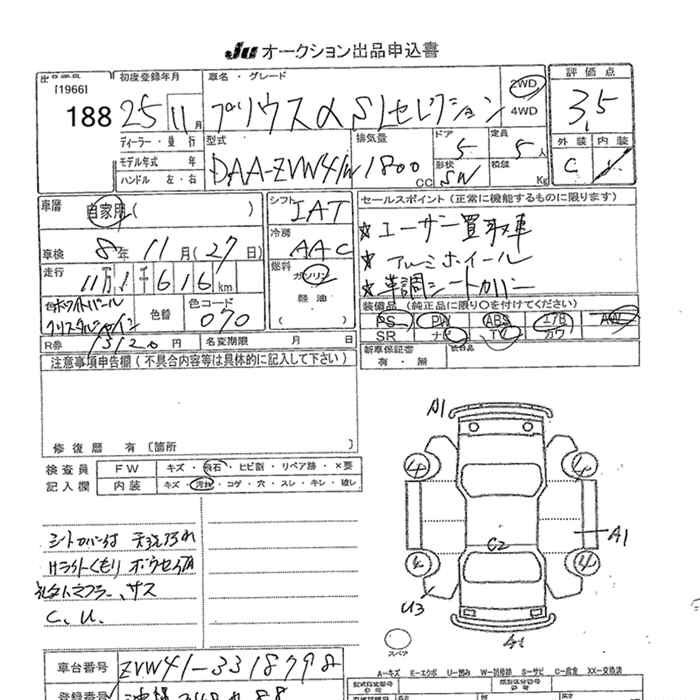 Ju オークション出品申込書
[1966]
188
初度登録年月
25 11月
車名・グレード
プリウスα SLセレクション
2WD
4WD
評価点
3.5
外装 内装
C
ディーラー・並行
モデル年式 年
ハンドル 左・右
型式
DAA-ZVW41W
排気量
1800 CC
ドア
5
定員
5人
形状
SW
積載
Kg
車歴
自家用( )
シフト
IAT
車検
8年11月(27日)
冷房
AAC
走行
11万1千616km
燃料
ガソリン
軽油
( )
色 ホワイトパール
クリスタルシャイン
色替
色コード
070
R券
円
名変期限 月 日
セールスポイント(正常に機能するものに限ります)
★ユーザー買取車
★アルミホイール
★革調シートカバー
装備品(純正品に限り○を付けてください)
PS PW ABS エアB AW
SR ナビ TV カワ
新車保証書
有・無
注意事項申告欄(不具合内容等は具体的に記入して下さい)
修復歴 有(箇所
検査員
記入欄
FW キズ・飛石・ヒビ割・リペア跡・×要
内装 キズ・汚れ・コゲ・穴・スレ・キレ・破レ
シートカバー付 天汚れ
Hライトくもり
マフラー、サス
C、U、
A1
A1
G2
U3
スペア
A-キズ E-エクボ U-凹み W-補修跡 S-サビ C-腐食 XX-交換済
車台番号
ZVW41-3318798
登録番号